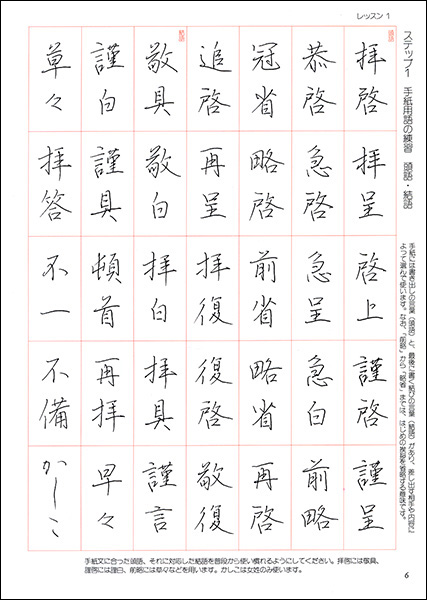 レッスン1
ステップ1 手紙用語の練習 頭語・結語
手紙には書き出しの言葉（頭語）と、最後に書く結びの言葉（結語）があり、差し出す相手や内容に
よって選んで使います。なお、「前略」から「略省」までは、はじめの挨拶を省略する意味です。
頭語
拝啓 拝呈 啓上 謹啓 謹呈
恭啓 急啓 急呈 急白 前略
冠省 略啓 前省 略省 再啓
追啓 再呈 拝復 復啓 敬復
結語
敬具 敬白 拝白 拝具 謹言
謹白 謹具 頓首 再拝 早々
草々 拝答 不一 不備 かしこ
手紙文に合った頭語、それに対応した結語を普段から使い慣れるようにしてください。拝啓には敬具、
謹啓には謹白、前略には草々などを用います。かしこは女性のみ使います。
6